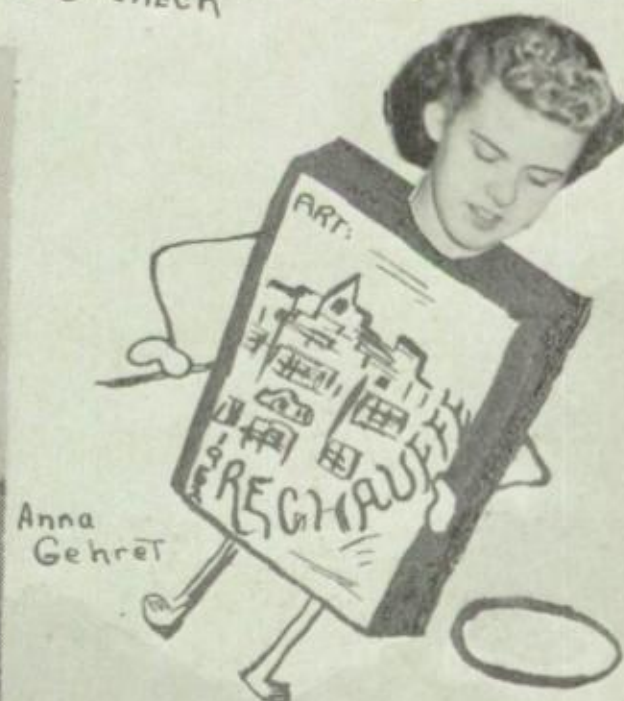 ART:
RECHAUFFE
Anna
Gehret